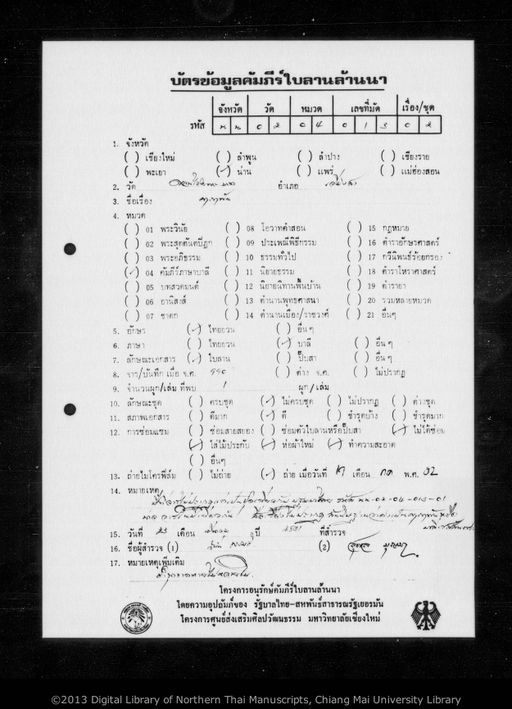 บัตรข้อมูลคัมภีร์ใบลานล้านนา
จังหวัด วัด หมวด เลขที่มัด เรื่อง/ชุด
รหัส น น 0 2 0 4 0 1 3 0 2
1. จังหวัด
( ) เชียงใหม่ ( ) ลำพูน ( ) ลำปาง ( ) เชียงราย
( ) พะเยา (✓) น่าน ( ) แพร่ ( ) แม่ฮ่องสอน
2. วัด อำเภอ
3. ชื่อเรื่อง
4. หมวด
( ) 01 พระวินัย ( ) 08 โอวาทคำสอน ( ) 15 กฎหมาย
( ) 02 พระสุตตันตปิฎก ( ) 09 ประเพณีพิธีกรรม ( ) 16 ตำราอักษรศาสตร์
( ) 03 พระอภิธรรม ( ) 10 ธรรมทั่วไป ( ) 17 กวีนิพนธ์ร้อยกรอง
(✓) 04 คัมภีร์ภาษาบาลี ( ) 11 นิยายธรรม ( ) 18 ตำราโหราศาสตร์
( ) 05 บทสวดมนต์ ( ) 12 นิยายนิทานพื้นบ้าน ( ) 19 ตำรายา
( ) 06 อานิสงส์ ( ) 13 ตำนานพุทธศาสนา ( ) 20 รวมหลายหมวด
( ) 07 ชาดก ( ) 14 ตำนานเมือง/ราชวงศ์ ( ) 21 อื่นๆ
5. อักษร (✓) ไทยยวน ( ) อื่นๆ
6. ภาษา ( ) ไทยยวน (✓) บาลี ( ) อื่นๆ
7. ลักษณะเอกสาร (✓) ใบลาน ( ) ปั๊บสา ( ) อื่นๆ
8. จาร/บันทึก เมื่อ จ.ศ. ( ) ค่าง จ.ศ. ( ) ไม่ปรากฏ
9. จำนวนผูก/เล่ม ที่พบ 1 ผูก/เล่ม
10. ลักษณะชุด ( ) ครบชุด (✓) ไม่ครบชุด ( ) ไม่ปรากฏ ( ) ต่างชุด
11. สภาพเอกสาร ( ) ดีมาก (✓) ดี ( ) ชำรุดบ้าง ( ) ชำรุดมาก
12. การซ่อมแซม ( ) ซ่อมสายสยอง ( ) ซ่อมตัวใบลานหรือปั๊บสา (✓) ไม่ได้ซ่อม
(✓) ใส่ไม้ประกับ (✓) ห่อผ้าใหม่ (✓) ทำความสะอาด
( ) อื่นๆ
13. ถ่ายไมโครฟิล์ม ( ) ไม่ถ่าย (✓) ถ่าย เมื่อวันที่ เดือน พ.ศ. 32
14. หมายเหตุ
15. วันที่ 23 เดือน ปี 2531 ที่สำรวจ
16. ชื่อผู้สำรวจ (1) (2)
17. หมายเหตุเพิ่มเติม
โครงการอนุรักษ์คัมภีร์ใบลานล้านนา
โดยความอุปถัมภ์ของ รัฐบาลไทย-สหพันธ์สาธารณรัฐเยอรมัน
โครงการศูนย์ส่งเสริมศิลปวัฒนธรรม มหาวิทยาลัยเชียงใหม่
©2013 Digital Library of Northern Thai Manuscripts, Chiang Mai University Library